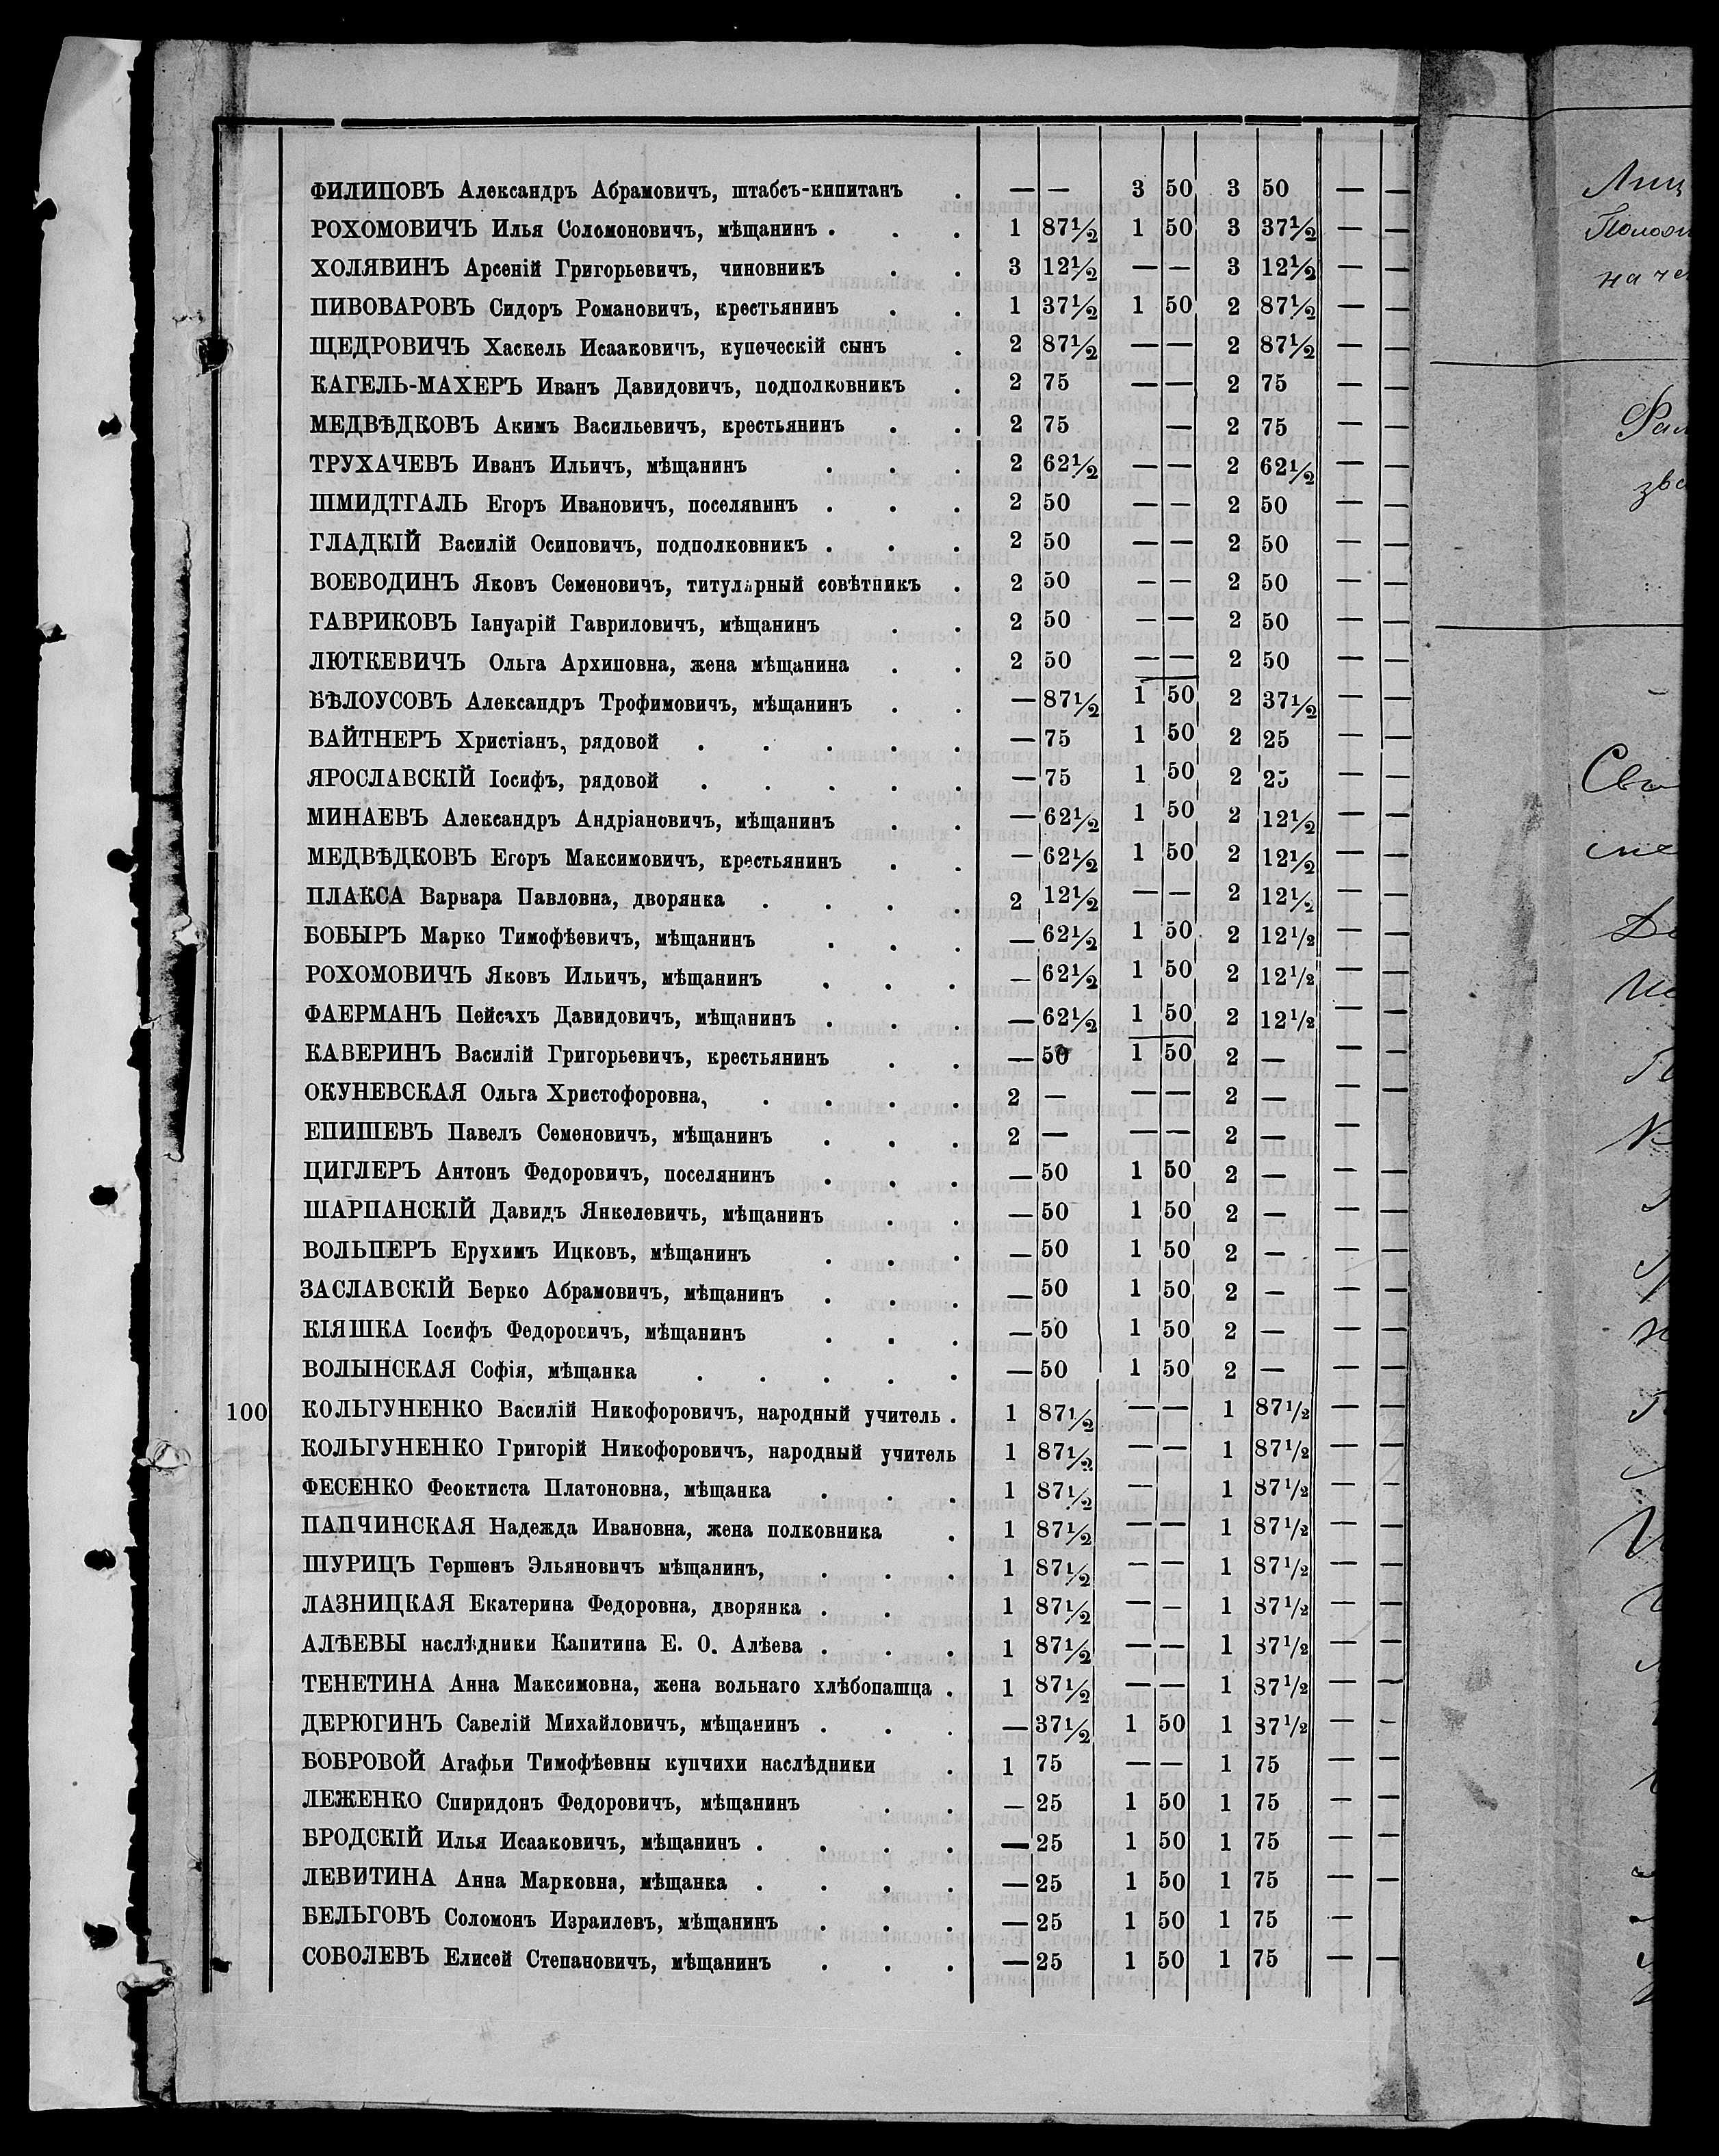 ФИЛИПОВЪ Александръ Абрамовичъ, штабсъ-кипитанъ . — — 3 50 3 50 — —
РОХОМОВИЧЪ Илья Соломоновичъ, мѣщанинъ . . . 1 87½ 1 50 3 37½ — —
ХОЛЯВИНЪ Арсеній Григорьевичъ, чиновникъ . . 3 12½ — — 3 12½ — —
ПИВОВАРОВЪ Сидоръ Романовичъ, крестьянинъ . . 1 37½ 1 50 2 87½ — —
ЩЕДРОВИЧЪ Хаскель Исааковичъ, купеческій сынъ . 2 87½ — — 2 87½ — —
КАГЕЛЬ-МАХЕРЪ Иванъ Давидовичъ, подполковникъ . 2 75 — — 2 75 — —
МЕДВѢДКОВЪ Акимъ Васильевичъ, крестьянинъ . . 2 75 — 2 75 — —
ТРУХАЧЕВЪ Иванъ Ильичъ, мѣщанинъ . . . 2 62½ — — 2 62½ — —
ШМИДТГАЛЬ Егоръ Ивановичъ, поселянинъ . . . 2 50 — — 2 50 — —
ГЛАДКІЙ Василій Осиповичъ, подполковникъ . . . 2 50 — — 2 50 — —
ВОЕВОДИНЪ Яковъ Семеновичъ, титулярный совѣтникъ . 2 50 — — 2 50 — —
ГАВРИКОВЪ Іануарій Гавриловичъ, мѣщанинъ . . 2 50 — — 2 50 — —
ЛЮТКЕВИЧЪ Ольга Архиповна, жена мѣщанина . . 2 50 — — 2 50 — —
БѢЛОУСОВЪ Александръ Трофимовичъ, мѣщанинъ . . — 87½ 1 50 2 37½ — —
ВАЙТНЕРЪ Христіанъ, рядовой . . . . . — 75 1 50 2 25 — —
ЯРОСЛАВСКІЙ Іосифъ, рядовой . . . . . — 75 1 50 2 25 — —
МИНАЕВЪ Александръ Андріановичъ, мѣщанинъ . . — 62½ 1 50 2 12½ — —
МЕДВѢДКОВЪ Егоръ Максимовичъ, крестьянинъ . . — 62½ 1 50 2 12½ — —
ПЛАКСА Варвара Павловна, дворянка . . . . 2 12½ — — 2 12½ — —
БОБЫРЪ Марко Тимофѣевичъ, мѣщанинъ . . . — 62½ 1 50 2 12½ — —
РОХОМОВИЧЪ Яковъ Ильичъ, мѣщанинъ . . . — 62½ 1 50 2 12½ — —
ФАЕРМАНЪ Пейсахъ Давидовичъ, мѣщанинъ . . . — 62½ 1 50 2 12½ — —
КАВЕРИНЪ Василій Григорьевичъ, крестьянинъ . . — 50 1 50 2 — — —
ОКУНЕВСКАЯ Ольга Христофоровна, . . . . 2 — — — 2 — — —
ЕПИШЕВЪ Павелъ Семеновичъ, мѣщанинъ . . . 2 — — — 2 — —
ЦИГЛЕРЪ Антонъ Федоровичъ, поселянинъ . . . — 50 1 50 2 — — —
ШАРПАНСКІЙ Давидъ Янкелевичъ, мѣщанинъ . . — 50 1 50 2 — — —
ВОЛЬПЕРЪ Ерухимъ Ицковъ, мѣщанинъ . . . — 50 1 50 2 — — —
ЗАСЛАВСКІЙ Берко Абрамовичъ, мѣщанинъ . . . — 50 1 50 2 — — —
КІЯШКА Іосифъ Федоровичъ, мѣщанинъ . . . — 50 1 50 2 — — —
ВОЛЫНСКАЯ Софія, мѣщанка . . . . . — 50 1 50 2 — — —
100 КОЛЬГУНЕНКО Василій Никофоровичъ, народный учитель . 1 87½ — — 1 87½ — —
КОЛЬГУНЕНКО Григорій Никофоровичъ, народный учитель 1 87½ — — 1 87½ — —
ФЕСЕНКО Феоктиста Платоновна, мѣщанка . . . 1 87½ — 1 87½ — —
ПАПЧИНСКАЯ Надежда Ивановна, жена полковника . 1 87½ — — 1 87½ — —
ШУРИЦЪ Гершенъ Эльяновичъ мѣщанинъ, . . . 1 87½ — — 1 87½ — —
ЛАЗНИЦКАЯ Екатерина Федоровна, дворянка . . 1 87½ — — 1 87½ — —
АЛѢЕВЫ наслѣдники Капитипа Е. О. Алѣева . . . 1 87½ — — 1 87½ — —
ТЕНЕТИНА Анна Максимовна, жена вольнаго хлѣбопашца . 1 87½ — — 1 87½ — —
ДЕРЮГИНЪ Савелій Михайловичъ, мѣщанинъ . . . — 37½ 1 50 1 87½ — —
БОБРОВОЙ Агафьи Тимофѣевны купчихи наслѣдники . 1 75 — — 1 75 — —
ЛЕЖЕНКО Спиридонъ Федоровичъ, мѣщанинъ . . — 25 1 50 1 75 — —
БРОДСКІЙ Илья Исааковичъ, мѣщанинъ . . . . — 25 1 50 1 75 — —
ЛЕВИТИНА Анна Марковна, мѣщанка . . . . — 25 1 50 1 75 — —
БЕЛЬГОВЪ Соломонъ Израилевъ, мѣщанинъ . . . — 25 1 50 1 75 —
СОБОЛЕВЪ Елисей Степановичъ, мѣщанинъ . . . — 25 1 50 1 75 — —